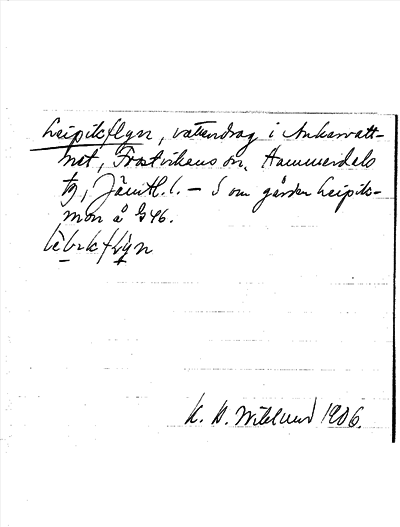 Leipikflyn, vattendrag i Ankarvatt-
net, Frostvikens sn, Hammerdals
tg, Jämtl. l. – S om gården Leipik-
mon å G46.
K. B. Wiklund 1906.